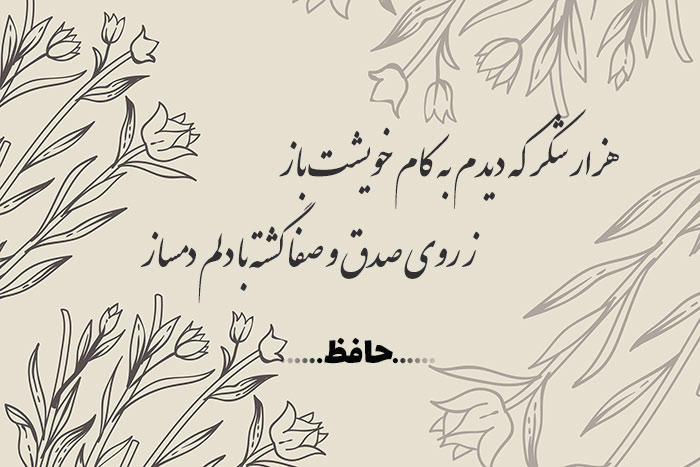 هزار شکر که دیدم به کام خویشت باز
ز روی صدق و صفا گشته با دلم دمساز
......حافظ......